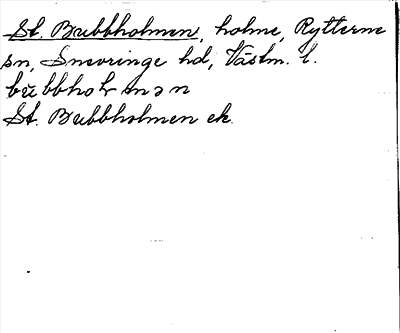 St. Bubbholmen, holme, Rytterne
sn, Snevringe hd, Västm. l.
bubbhoɫmən
St. Bubbholmen ek.